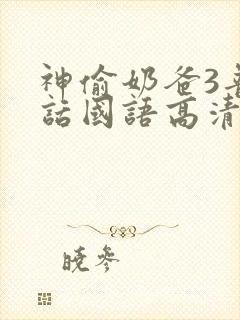 神偷奶爸3普
話國語高清
曉參